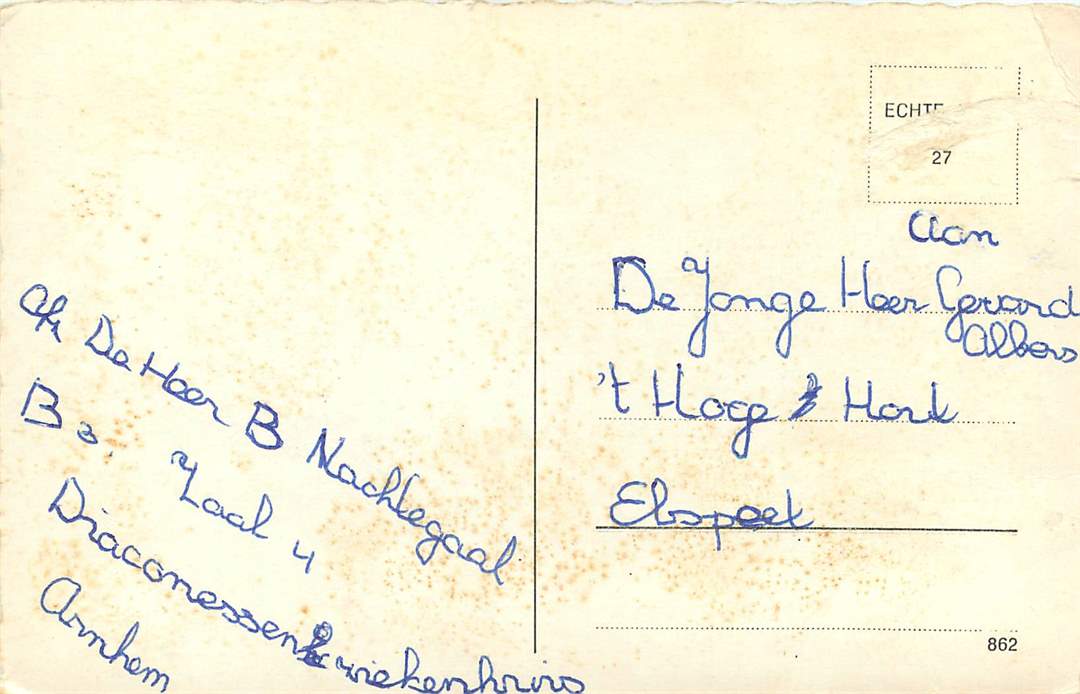 afz De Heer B Nachtegaal
B 3. Zaal 4
Diaconessen ziekenhuis
Arnhem
ECHTE
27
Aan
De Jonge Heer Gerard
Albers
't Hoge Hork
Elspeet
862